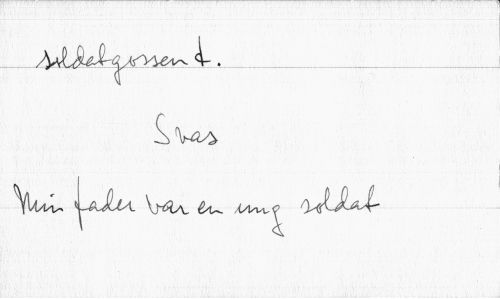 soldatgossen d.
Svas
Min fader var en ung soldat